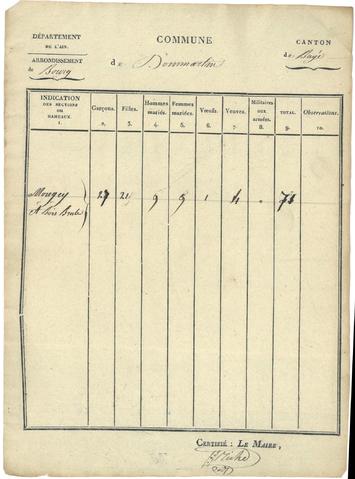 DÉPARTEMENT
DE L'AIN.
ARRONDISSEMENT
de Bourg
COMMUNE
de Dommartin
CANTON
de Bagé
INDICATION
DES SECTIONS
OU
HAMEAUX
1.
Garçons.
2.
Filles.
3.
Hommes
mariés.
4.
Femmes
mariées.
5.
Veufs.
6.
Veuves.
7.
Militaires
aux
armées.
8.
TOTAL.
9.
Observations.
10.
Mongey
& Bois Brulé
27 21 9 9 1 4 . 71
CERTIFIÉ : LE MAIRE,